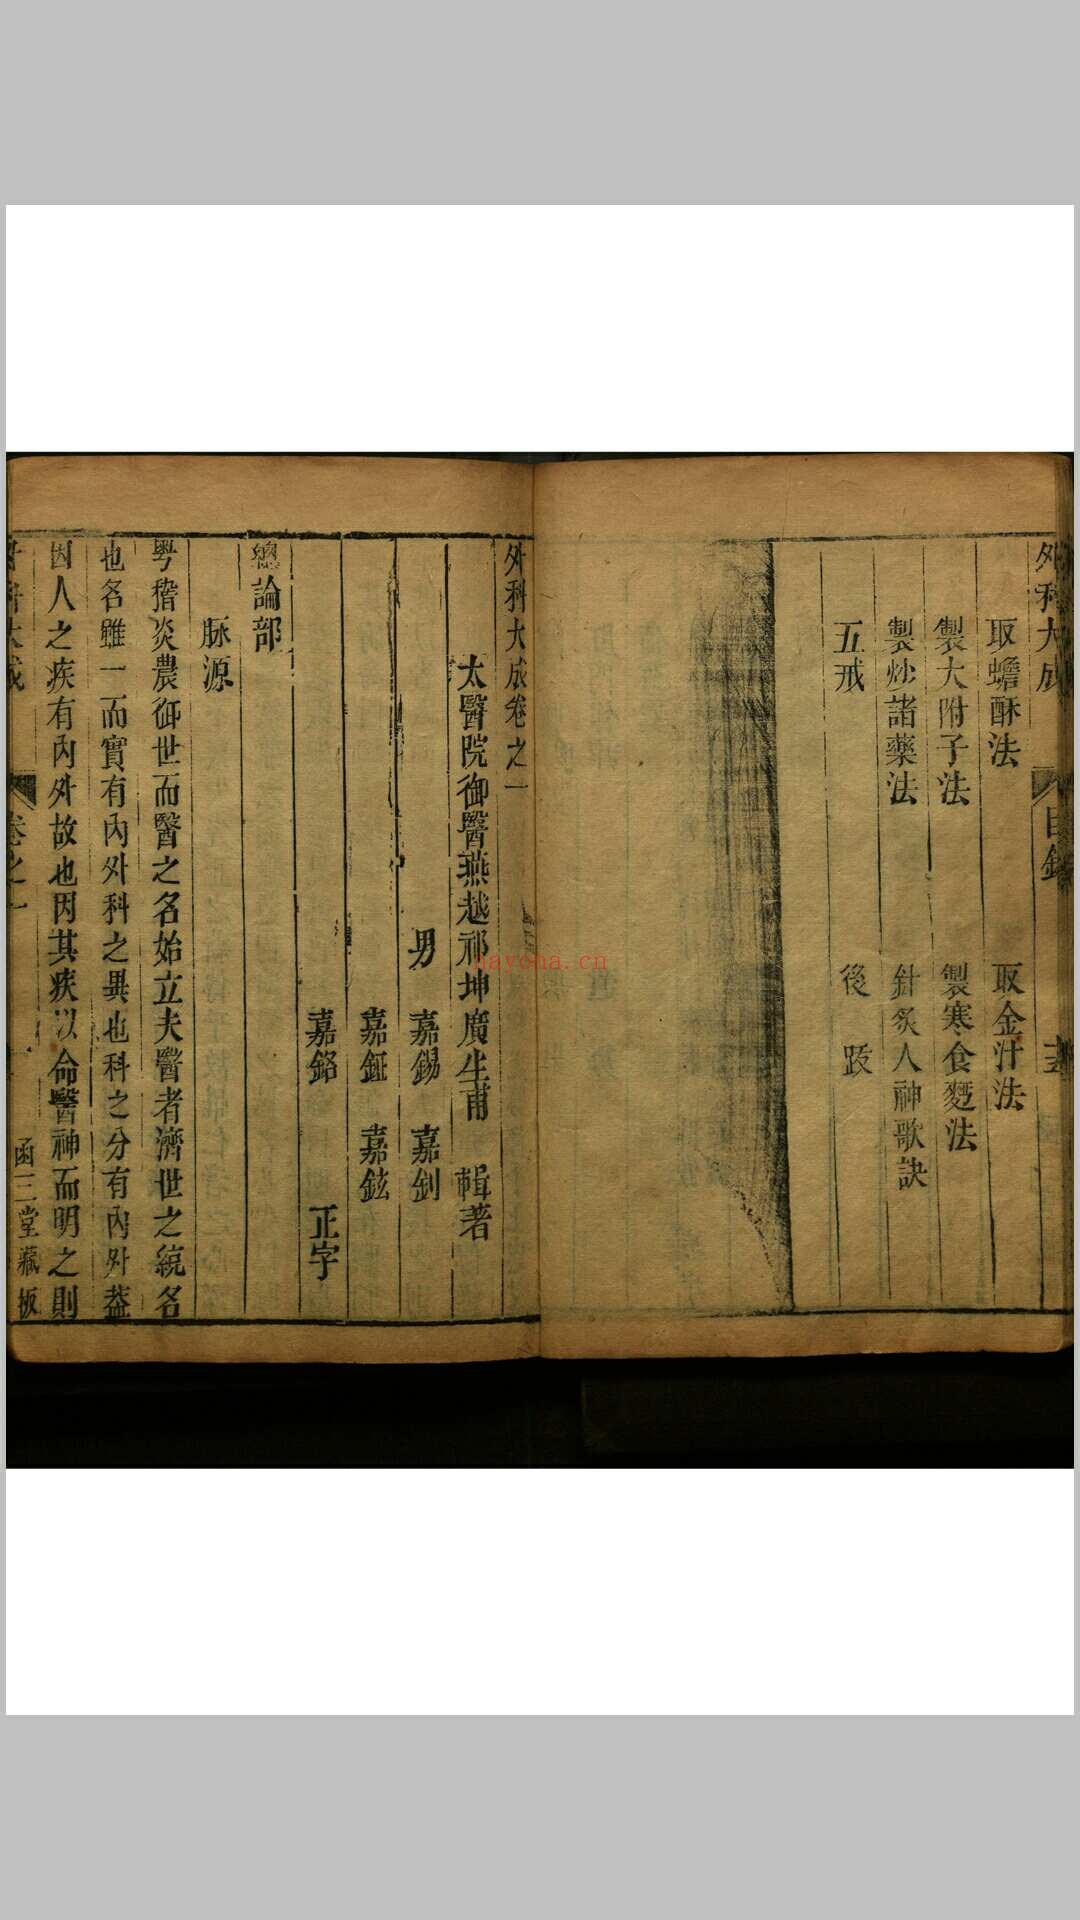 外科大成
目錄
取蟾酥法 取金汁法
製大附子法 製寒食麪法
製炒諸藥法 針炙人神歌訣
五戒 後跋
外科大成卷之一
太醫院御醫燕越祁坤廣生甫 輯著
男 嘉錫 嘉釗
嘉鉦 嘉鉉
嘉鉻 正字
總論部
脉源
粤稽炎農御世而醫之名始立夫醫者濟世之統名
也名雖一而實有內外科之異也科之分有內外葢
因人之疾有內外故也因其疾以命醫神而明之則
外科大成
卷之一
函三堂藏板
nayona.cn